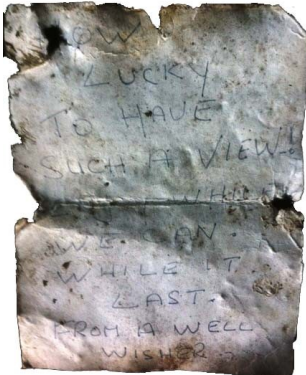 OW
LUCKY
TO HAVE
SUCH A VIEW!
WHILE
WE CAN.
WHILE IT
LAST.
FROM A WELL
WISHER